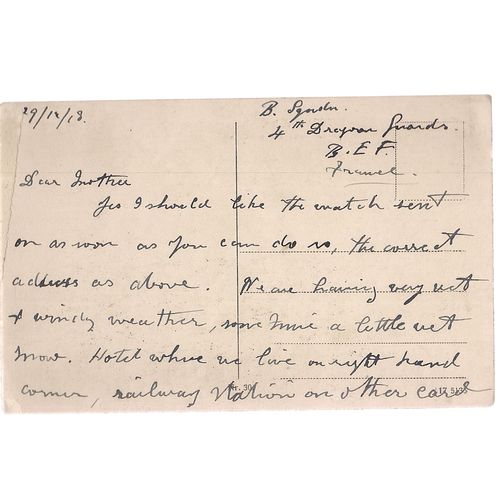 29/12/18.
B. Synder.
4th Dragoon Guards.
B.E.F.
France.
Dear Mother
Yes I should like the watch sent
on as soon as you can do so, the correct
address as above. We are having very wet
& windy weather, some time a little wet
snow. Hotel where we live on right hand
corner, railway station on other card
Nr. 30